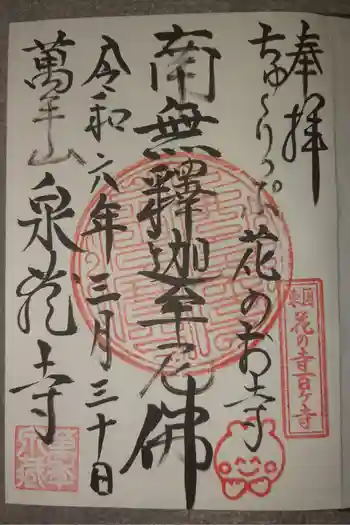 奉拝
東国花の寺百ヶ寺
ちゅうりっぷ花のお寺
南無釋迦牟尼佛
令和六年三月三十日
萬年山
泉龍寺